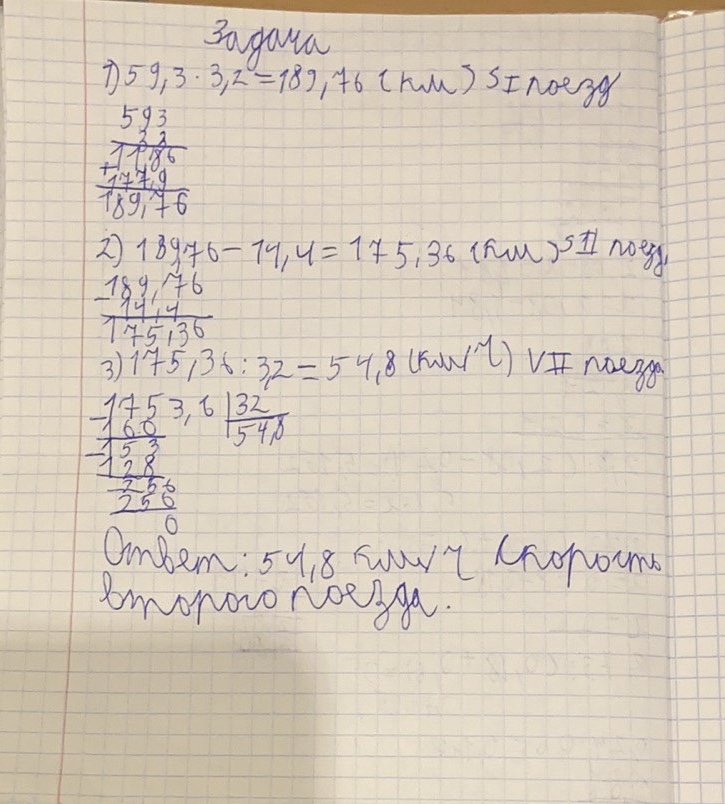 Задача
1) 59,3 · 3,2 = 189,76 (км) S I поезд
593
32
1186
+
177,9
189,76
2) 189,76 - 14,4 = 175,36 (км) S II поезд
- 189,76
14,4
175,36
3) 175,36 : 3,2 = 54,8 (км/ч) V II поезда
- 1753,6 | 32
160 | 54,8
- 153
128
256
256
0
Ответ: 54,8 км/ч скорость
второго поезда.